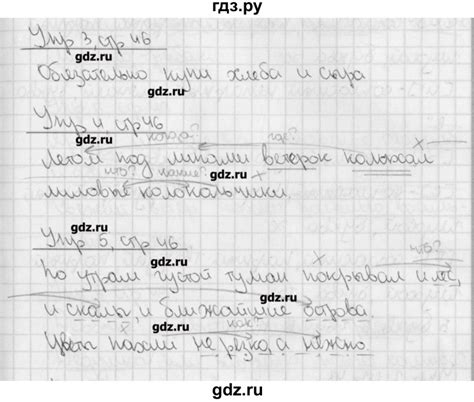 гдз.ру
Упр 3, стр 46
gdz.ru
Обязательно купи хлеба и сыра
gdz.ru
Упр 4 стр 46
когда? где?
gdz.ru
Летом под липами ветерок колыхал
что? какие?
gdz.ru
лиловые колокольчики.
gdz.ru
Упр 5, стр 46
что?
gdz.ru
По утрам густой туман покрывал и лес
и скалы, и ближайшие острова.
gdz.ru
как?
Цветы пахли не резко, а нежно.
gdz.ru
gdz.ru